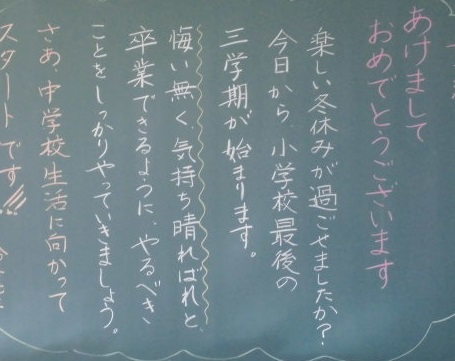 あけまして
おめでとうございます
楽しい冬休みが過ごせましたか?
今日から、小学校最後の
三学期が始まります。
悔い無く、気持ち晴ればれと、
卒業できるように、やるべき
ことをしっかりやっていきましょう。
さあ、中学校生活に向かって
スタートです!!!